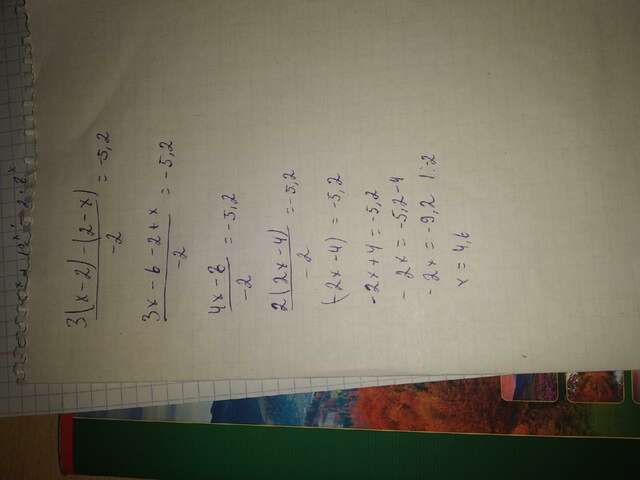 3(x-2)-(2-x) / -2 = -5,2
3x-6-2+x / -2 = -5,2
4x-8 / -2 = -5,2
2(2x-4) / -2 = -5,2
(-2x-4) = -5,2
-2x+4 = -5,2
-2x = -5,2-4
-2x = -9,2 |:-2
x = 4,6